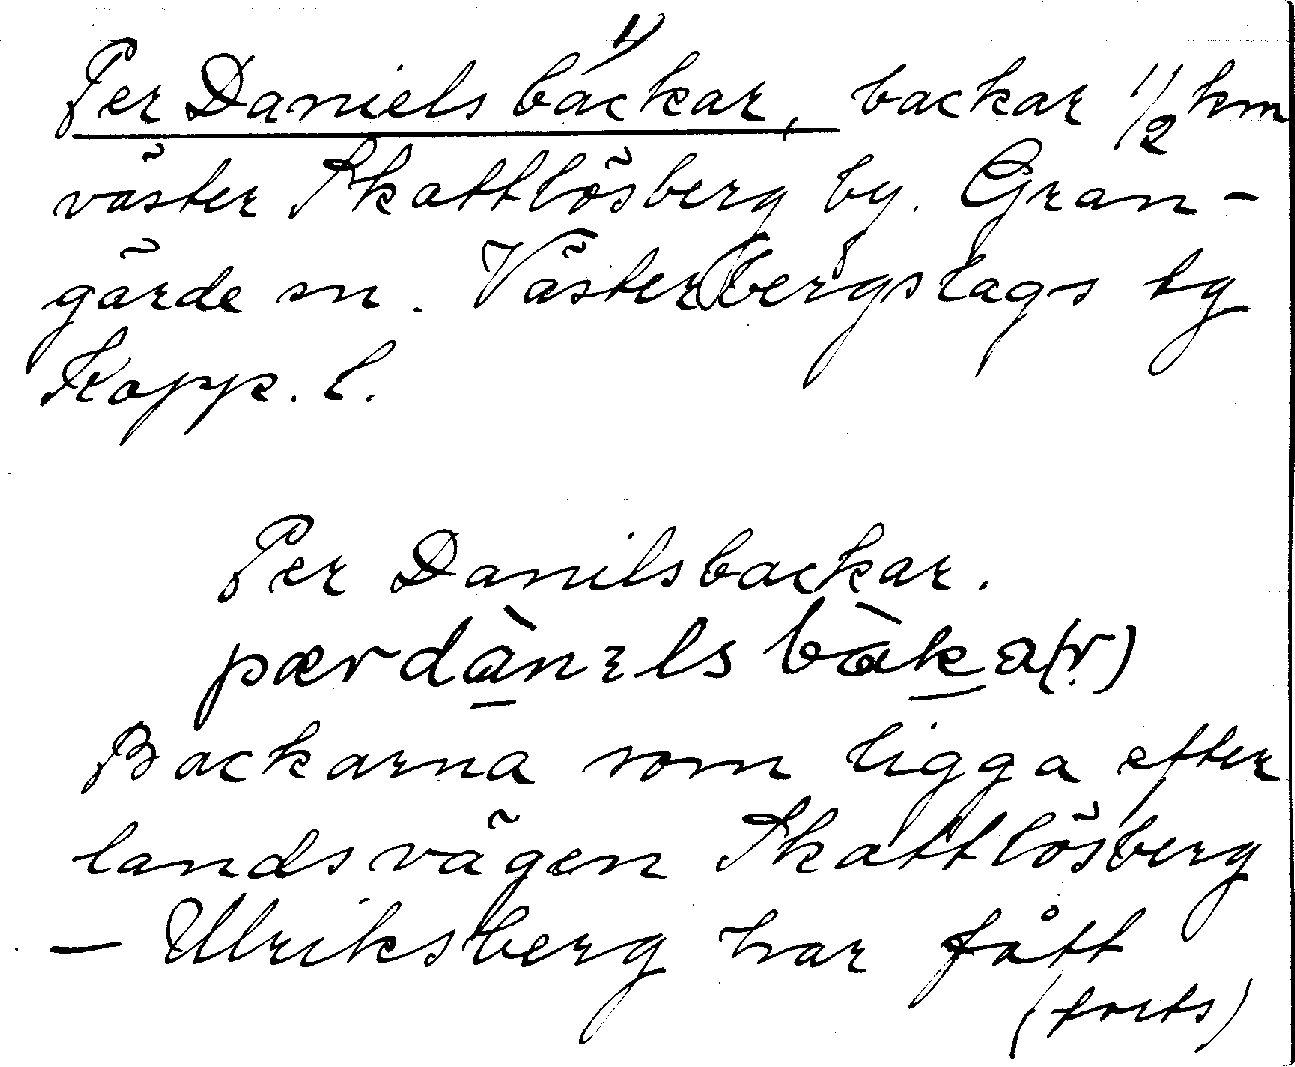 1)
Per Daniels backar, backar 1/2 km
väster Skattlösberg by. Gran-
gärde sn. Västerbergslags tg
Kopp. l.
Per Danilsbackar.
pærdànɩls bàka(r)
Backarna som ligga efter
landsvägen Skattlösberg
— Ulriksberg har fått
(forts)